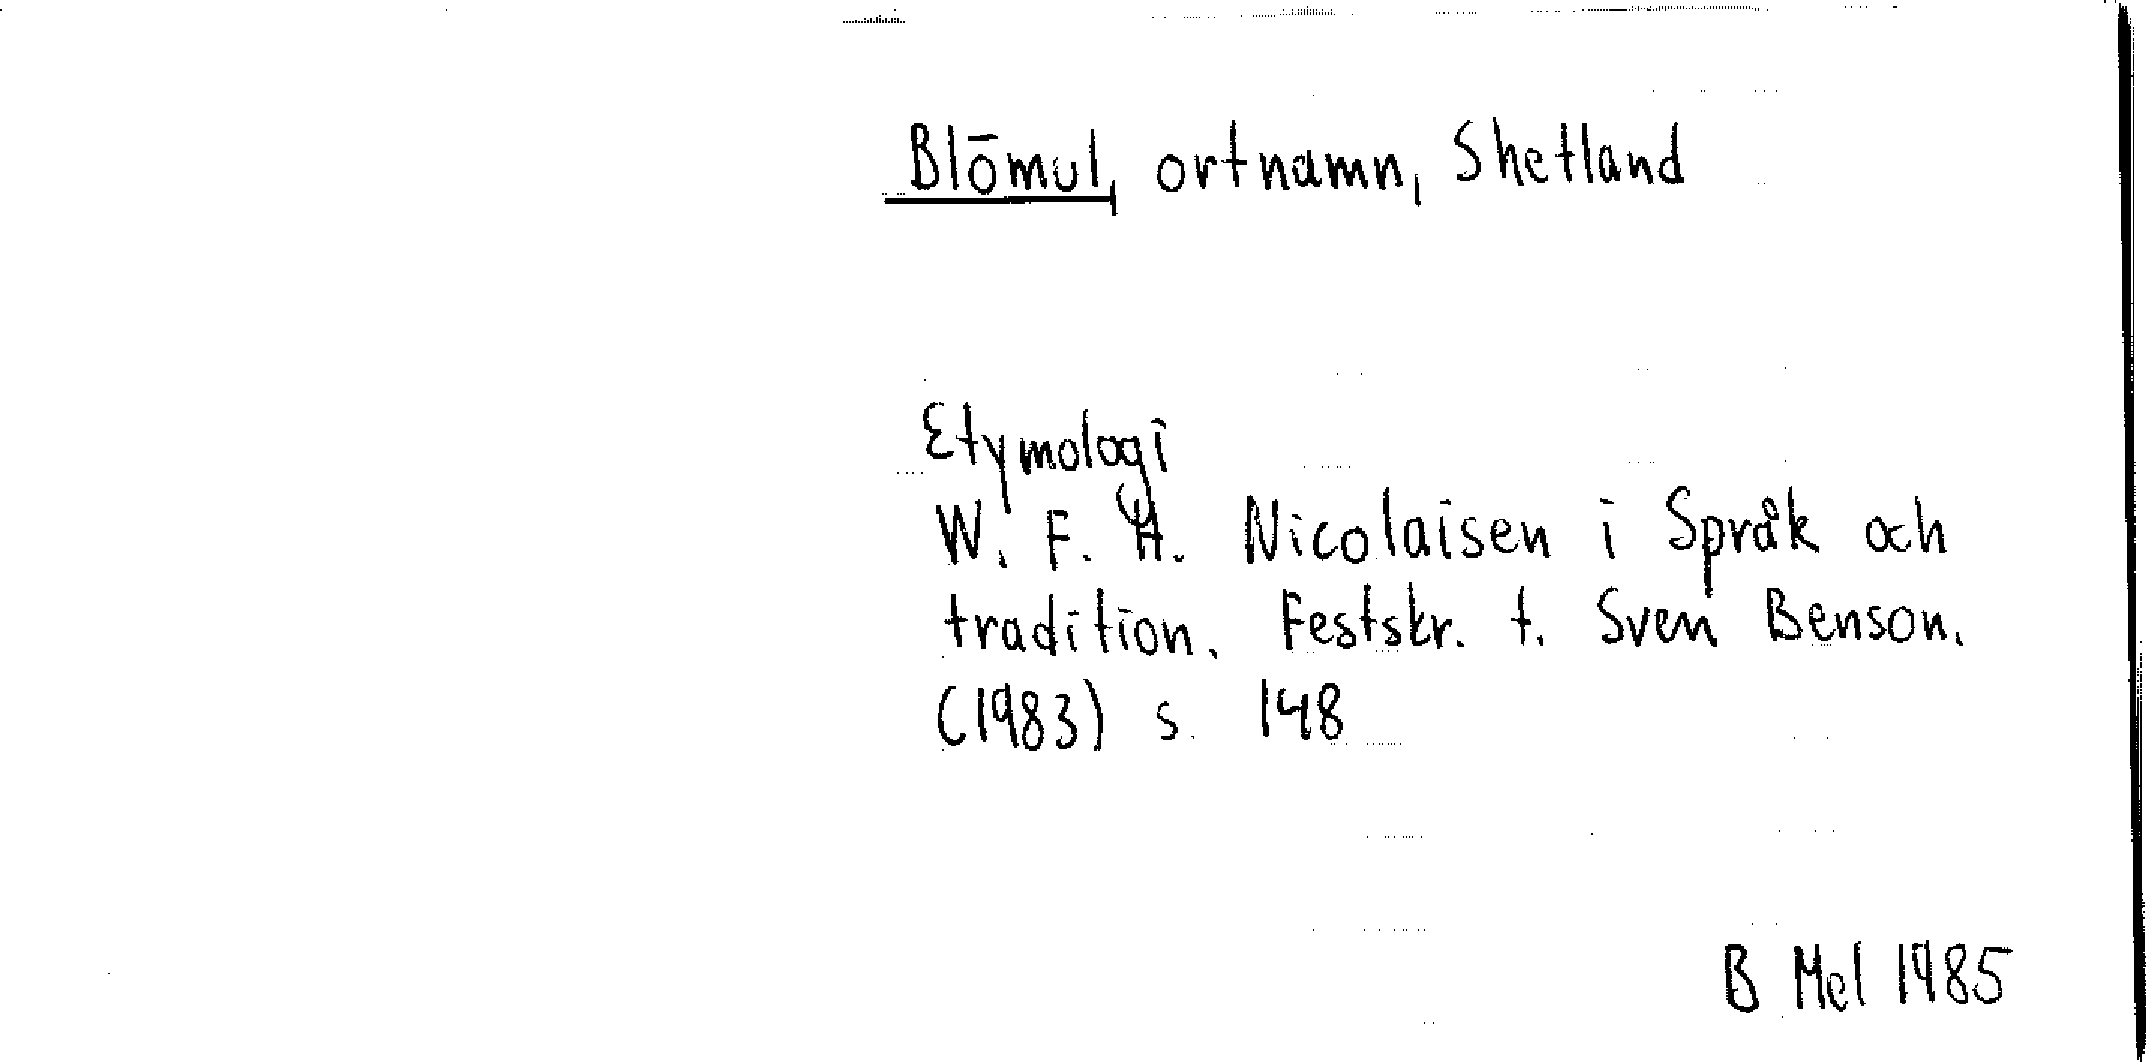 Blōmul, ortnamn, Shetland
Etymologi
W. F. H. Nicolaisen i Språk och
tradition. Festskr. t. Sven Benson.
(1983) s. 148
B Mel 1985